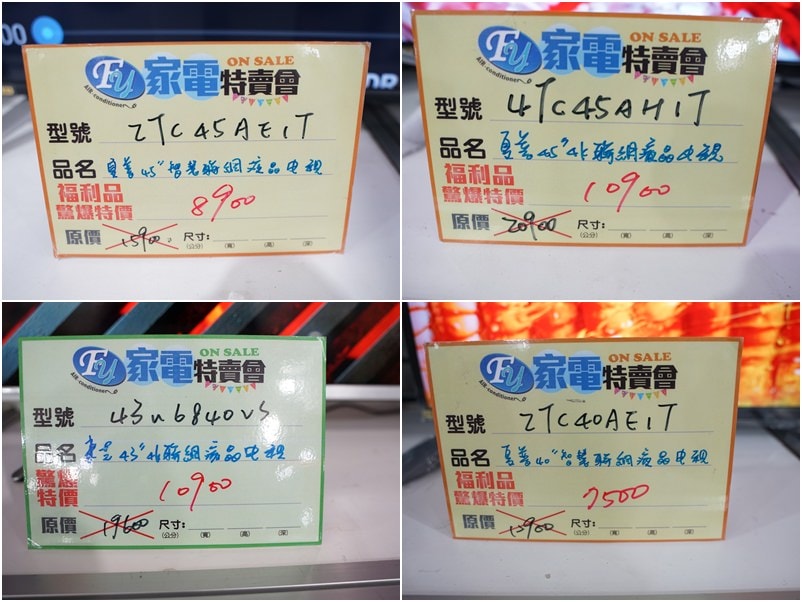 00
FU 家電特賣會 ON SALE
AIR-conditioner
型號 2TC45AE1T
品名 夏普45"智慧聯網液晶电視
福利品
驚爆特價 8900
原價 15900 尺寸:
(公分) (寬) (高) (深)
FU 家電特賣會 ON SALE
AIR-conditioner
型號 4TC45AH1T
品名 夏普45"4k聯網液晶电視
福利品
驚爆特價 10900
原價 20900 尺寸:
(公分) (寬) (高) (深)
FU 家電特賣會 ON SALE
AIR-conditioner
型號 43u6840vs
品名 東芝43"4k聯網液晶电視
驚爆
特價 10900
原價 19600 尺寸:
(公分) (寬) (高) (深)
FU 家電特賣會 ON SALE
AIR-conditioner
型號 2TC40AE1T
品名 夏普40"智慧聯網液晶电視
福利品
驚爆特價 7500
原價 13900 尺寸:
(公分) (寬) (高) (深)